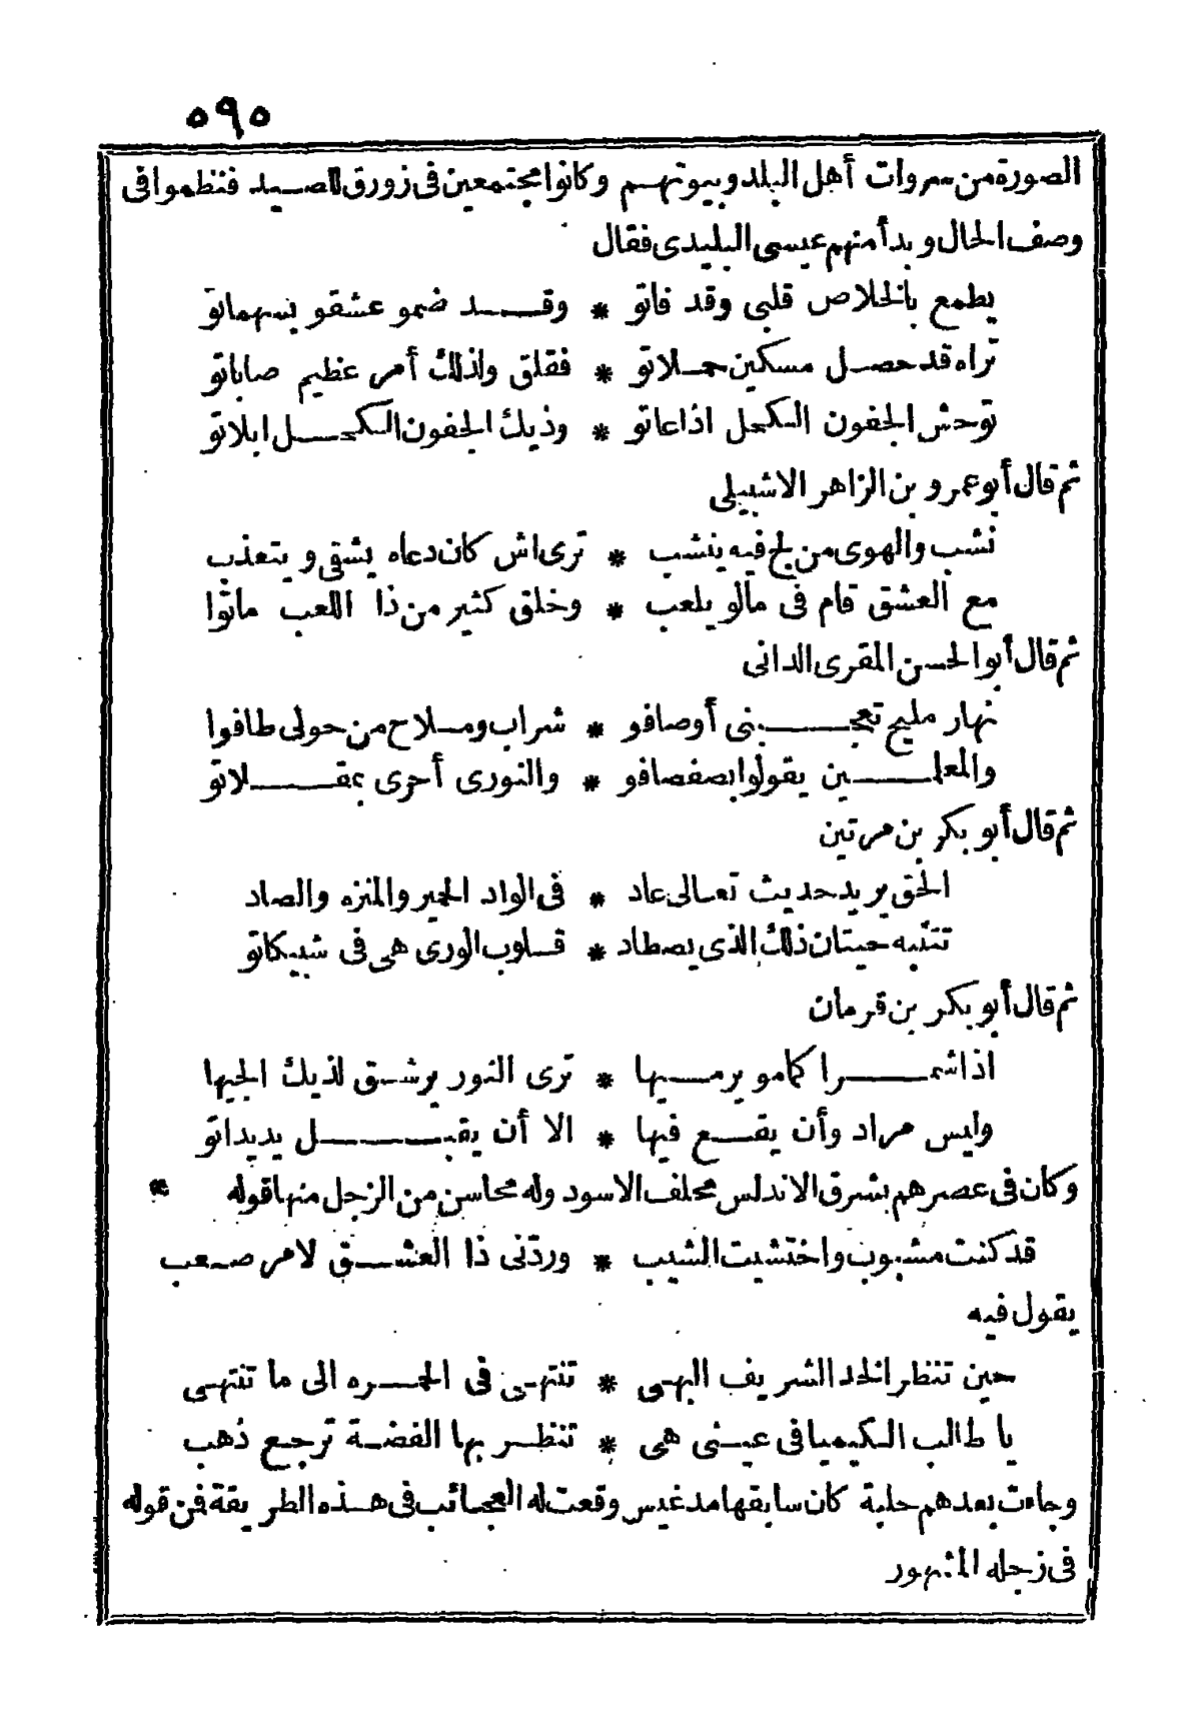 ٥٩٥
الصورة من سروات أهل البلد وبيوتهم وكانوا مجتمعين فى زورق للصيد فنظموا فى
وصف الحال وبدأ منهم عيسى البليدى فقال
يطمع بالخلاص قلبى وقد فاتو * وقد ضمو عشقو بسهماتو
تراه قد حصل مسكين حملاتو * فقلق ولذلك أمر عظيم صاباتو
توحش الجفون الكحل اذا عاتو * وذيك الجفون الكحل ابلاتو
ثم قال أبو عمرو بن الزاهر الاشبيلى
نشب والهوى من لج فيه ينشب * ترى اش كان دعاه يشقى ويتعذب
مع العشق قام فى مالو يلعب * وخلق كثير من ذا اللعب ماتوا
ثم قال أبو الحسن المقرى الدانى
نهار مليح تعجبنى أوصافو * شراب وملاح من حولى طافوا
والمعلمين يقولوا بصفصافو * والنورى أحرى بمقلاتو
ثم قال أبو بكر بن مرتين
الحق يريد حديث تعالى عاد * فى الواد الحمير والمنزه والصاد
تتنبه حيتان ذلك الذى يصطاد * قلوب الورى هى فى شبيكاتو
ثم قال أبو بكر بن قرمان
اذا شمرا كمامو يرميها * ترى النور يرشق لذيك الجيها
وليس مراد وأن يقع فيها * الا أن يقبل يديداتو
وكان فى عصرهم بشرق الاندلس محلف الاسود وله محاسن من الزجل منها قوله
قد كنت مشبوب واختشيت الشيب * وردّنى ذا العشق لامر صعب
يقول فيه
حين تنظر الخد الشريف البهى * تنتهى فى الخمره الى ما تنتهى
يا طالب الكيميا فى عينى هى * تنظر بها الفضة ترجع ذهب
وجاءت بعدهم حلبة كان سابقها مدغيس وقعت له العجائب فى هذه الطريقة فمن قوله
فى زجله المشهور